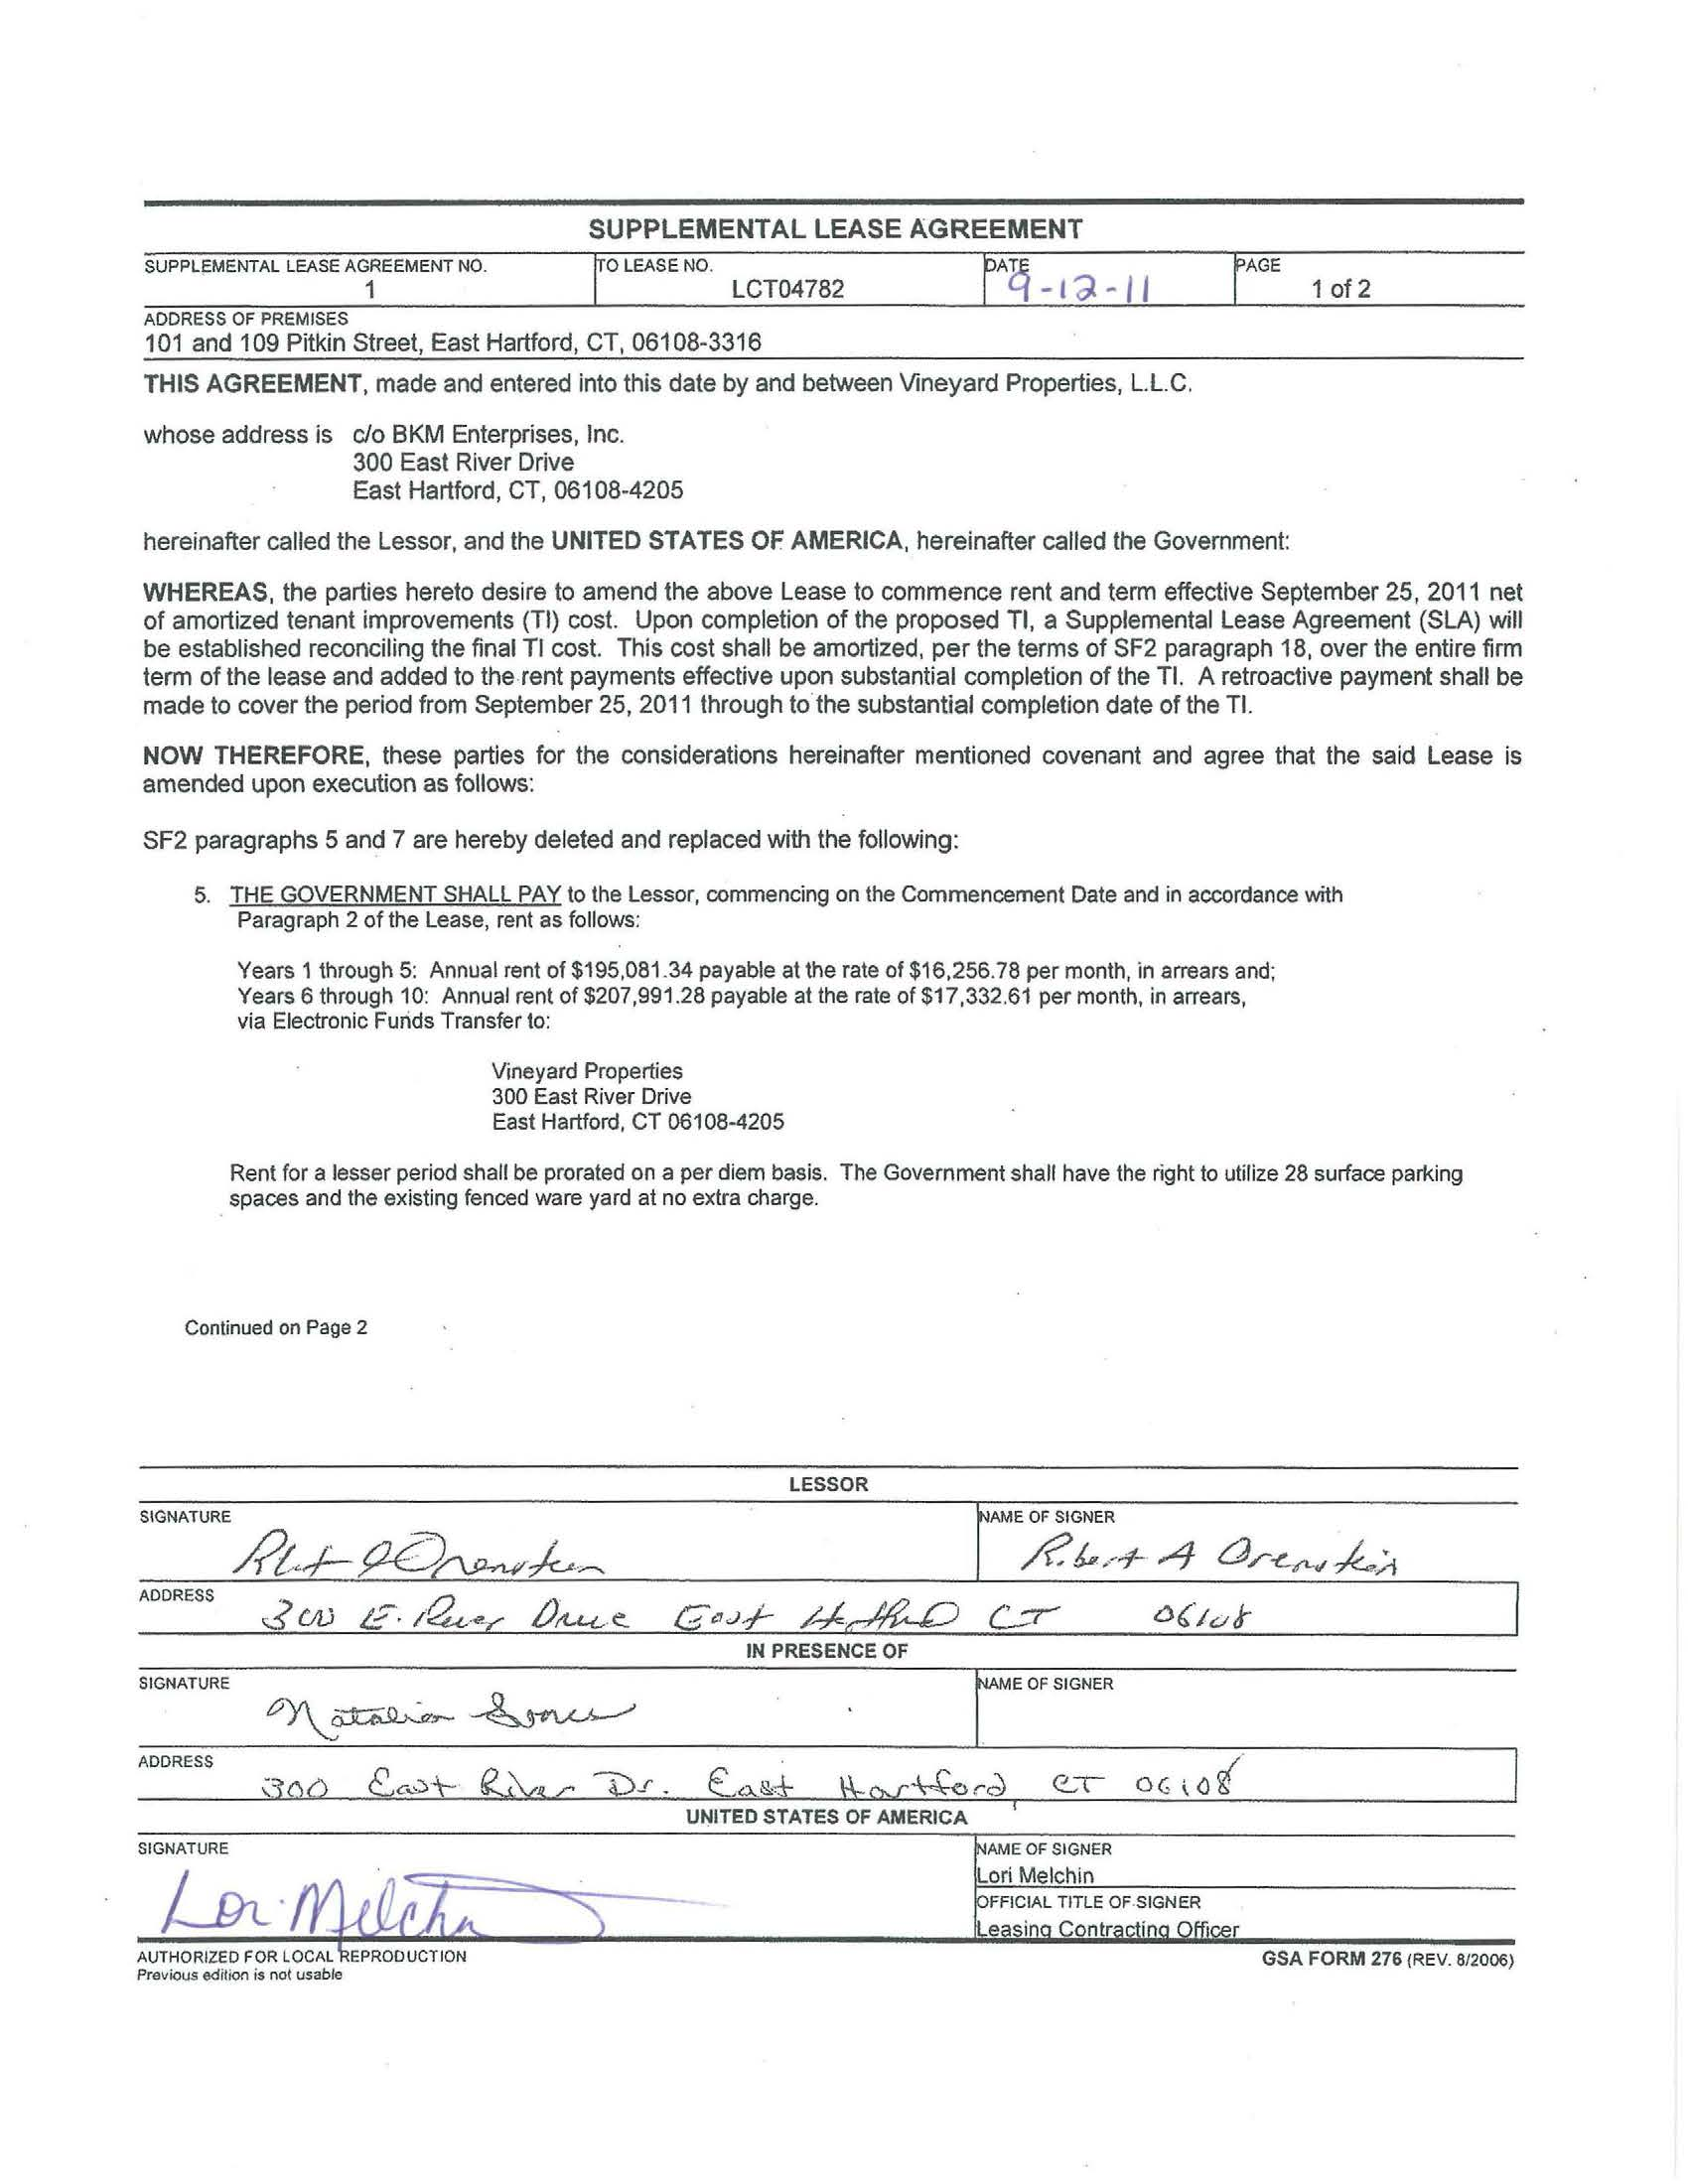 SUPPLEMENTAL LEASE AGREEMENT
SUPPLEMENTAL LEASE AGREEMENT NO.
1
TO LEASE NO.
LCT04782
DATE
9-12-11
PAGE
1 of 2
ADDRESS OF PREMISES
101 and 109 Pitkin Street, East Hartford, CT, 06108-3316
THIS AGREEMENT, made and entered into this date by and between Vineyard Properties, L.L.C.
whose address is c/o BKM Enterprises, Inc.
300 East River Drive
East Hartford, CT, 06108-4205
hereinafter called the Lessor, and the UNITED STATES OF AMERICA, hereinafter called the Government:
WHEREAS, the parties hereto desire to amend the above Lease to commence rent and term effective September 25, 2011 net
of amortized tenant improvements (TI) cost. Upon completion of the proposed TI, a Supplemental Lease Agreement (SLA) will
be established reconciling the final TI cost. This cost shall be amortized, per the terms of SF2 paragraph 18, over the entire firm
term of the lease and added to the rent payments effective upon substantial completion of the TI. A retroactive payment shall be
made to cover the period from September 25, 2011 through to the substantial completion date of the TI.
NOW THEREFORE, these parties for the considerations hereinafter mentioned covenant and agree that the said Lease is
amended upon execution as follows:
SF2 paragraphs 5 and 7 are hereby deleted and replaced with the following:
5. THE GOVERNMENT SHALL PAY to the Lessor, commencing on the Commencement Date and in accordance with
Paragraph 2 of the Lease, rent as follows:
Years 1 through 5: Annual rent of $195,081.34 payable at the rate of $16,256.78 per month, in arrears and;
Years 6 through 10: Annual rent of $207,991.28 payable at the rate of $17,332.61 per month, in arrears,
via Electronic Funds Transfer to:
Vineyard Properties
300 East River Drive
East Hartford, CT 06108-4205
Rent for a lesser period shall be prorated on a per diem basis. The Government shall have the right to utilize 28 surface parking
spaces and the existing fenced ware yard at no extra charge.
Continued on Page 2
LESSOR
SIGNATURE
NAME OF SIGNER
Robert A Orenstein
ADDRESS
300 E. River Drive East Hartford CT 06108
IN PRESENCE OF
SIGNATURE
Natalia
NAME OF SIGNER
ADDRESS
300 East River Dr. East Hartford CT 06108
UNITED STATES OF AMERICA
SIGNATURE
Lori Melchin
NAME OF SIGNER
Lori Melchin
OFFICIAL TITLE OF SIGNER
Leasing Contracting Officer
AUTHORIZED FOR LOCAL REPRODUCTION
Previous edition is not usable
GSA FORM 276 (REV. 8/2006)